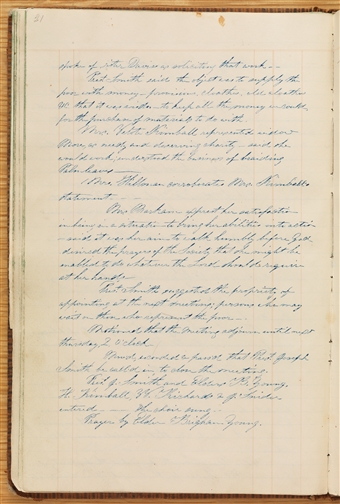 21
spoke of sister Davis as soliciting that work —
Prest Smith said the object was to supply the
poor with money - provisions, clothes, old clothes
&c that it was needful to keep all the money we could
for the purchase of materials to do with
Mrs. Kimball represented widow
as needy and deserving charity — said she
could work, understood the business of braiding
Palm leaves —
Mrs. corroborates Mrs. Kimball's
statement —
Mrs Markham expres'd her satisfaction
in being to bring her abilities into action
said it was her aim to walk humbly before God
desired the prayers of the Society that she might be
enabled to do whatever the Lord should require
at her hands —
Prest Smith suggested the propriety of
appointing at the next meeting, persons who may
wait on those who represent the poor —
Motioned that the meeting adjourn until next
thursday 2 o'clock
Mov'd, second'd & passed that Prest Joseph
Smith be call'd in to close the meeting.
Prest J. Smith and Elders B. Young,
H. Kimball, W. Richards & J. Snider
entered — the choir sung —
Prayer by Elder Brigham Young.